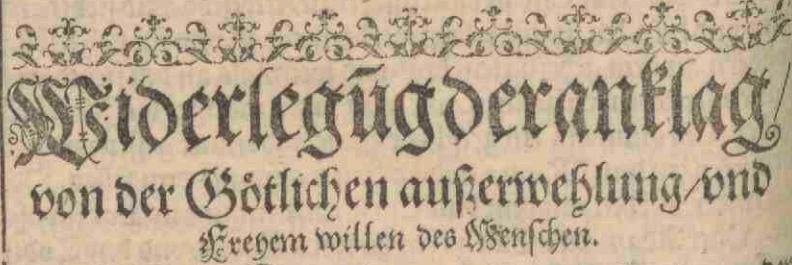 Widerlegūg der anklag/
von der Go̊tlichen außerwehlung/vnd
Freyem willen des Menschen.